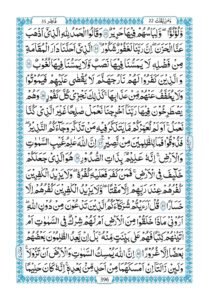 فاطر ٣٥
ومن يقنت ٢٢
وَّلُؤْلُؤًا ۚ وَلِبَاسُهُمْ فِيْهَا حَرِيْرٌ وَقَالُوا الْحَمْدُ لِلّٰهِ الَّذِيْٓ اَذْهَبَ
عَنَّا الْحَزَنَ ؕ اِنَّ رَبَّنَا لَغَفُوْرٌ شَكُوْرٌ الَّذِيْٓ اَحَلَّنَا دَارَ الْمُقَامَةِ
مِنْ فَضْلِهٖ ۚ لَا يَمَسُّنَا فِيْهَا نَصَبٌ وَّلَا يَمَسُّنَا فِيْهَا لُغُوْبٌ
وَالَّذِيْنَ كَفَرُوْا لَهُمْ نَارُ جَهَنَّمَ ۚ لَا يُقْضٰى عَلَيْهِمْ فَيَمُوْتُوْا
وَلَا يُخَفَّفُ عَنْهُمْ مِّنْ عَذَابِهَا ؕ كَذٰلِكَ نَجْزِيْ كُلَّ كَفُوْرٍ وَهُمْ
يَصْطَرِخُوْنَ فِيْهَا ۚ رَبَّنَآ اَخْرِجْنَا نَعْمَلْ صَالِحًا غَيْرَ الَّذِيْ كُنَّا
نَعْمَلُ ؕ اَوَلَمْ نُعَمِّرْكُمْ مَّا يَتَذَكَّرُ فِيْهِ مَنْ تَذَكَّرَ وَجَآءَكُمُ النَّذِيْرُ ؕ
فَذُوْقُوْا فَمَا لِلظّٰلِمِيْنَ مِنْ نَّصِيْرٍ اِنَّ اللّٰهَ عٰلِمُ غَيْبِ السَّمٰوٰتِ
وَالْاَرْضِ ؕ اِنَّهٗ عَلِيْمٌۢ بِذَاتِ الصُّدُوْرِ هُوَ الَّذِيْ جَعَلَكُمْ
خَلٰٓئِفَ فِي الْاَرْضِ ؕ فَمَنْ كَفَرَ فَعَلَيْهِ كُفْرُهٗ ؕ وَلَا يَزِيْدُ الْكٰفِرِيْنَ
كُفْرُهُمْ عِنْدَ رَبِّهِمْ اِلَّا مَقْتًا ۚ وَلَا يَزِيْدُ الْكٰفِرِيْنَ كُفْرُهُمْ اِلَّا
خَسَارًا قُلْ اَرَءَيْتُمْ شُرَكَآءَكُمُ الَّذِيْنَ تَدْعُوْنَ مِنْ دُوْنِ اللّٰهِ ؕ
اَرُوْنِيْ مَاذَا خَلَقُوْا مِنَ الْاَرْضِ اَمْ لَهُمْ شِرْكٌ فِي السَّمٰوٰتِ ۚ اَمْ
اٰتَيْنٰهُمْ كِتٰبًا فَهُمْ عَلٰى بَيِّنَتٍ مِّنْهُ ۚ بَلْ اِنْ يَّعِدُ الظّٰلِمُوْنَ بَعْضُهُمْ
بَعْضًا اِلَّا غُرُوْرًا اِنَّ اللّٰهَ يُمْسِكُ السَّمٰوٰتِ وَالْاَرْضَ اَنْ تَزُوْلَا ۚ
وَلَئِنْ زَالَتَآ اِنْ اَمْسَكَهُمَا مِنْ اَحَدٍ مِّنْۢ بَعْدِهٖ ؕ اِنَّهٗ كَانَ حَلِيْمًا
396